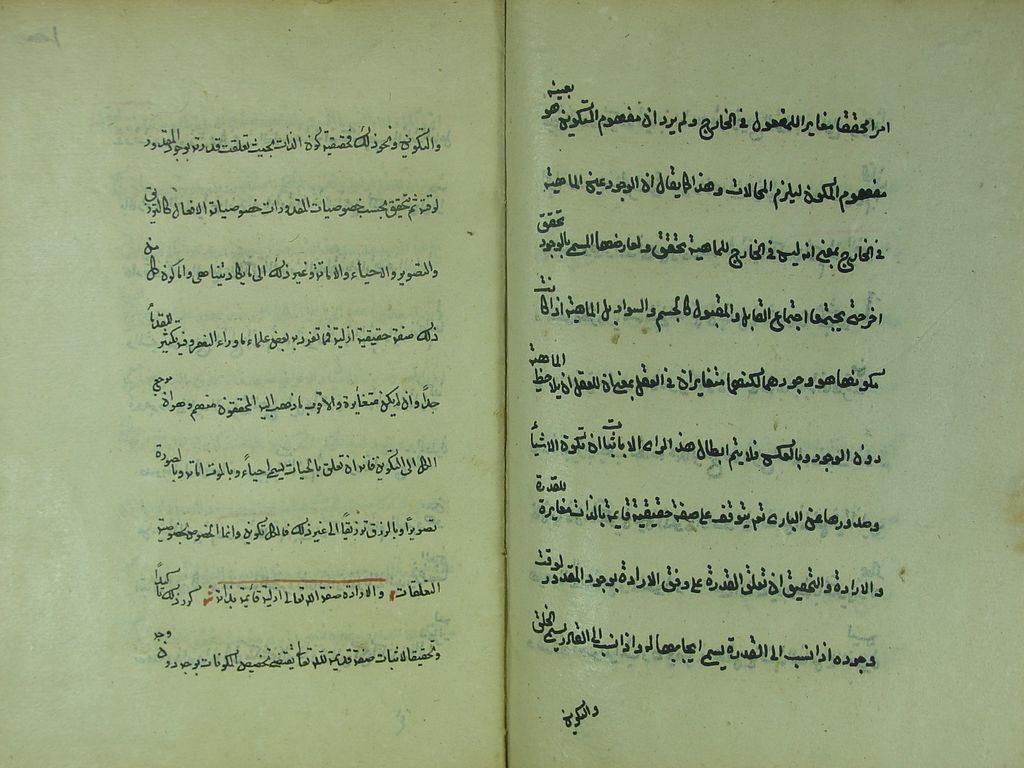 امرا محققا مغايرا للمفعول في الخارج ولم يرد ان مفهوم التكوين هو بعينه
مفهوم المكون ليلزم المحالات وهذا كما يقال ان الوجود عين الماهية
في الخارج بمعنى انه ليس في الخارج للماهية تحقق ولعارضها المسمى بالوجود تحقق
اخر حتى يجتمعا اجتماع القابل والمقبول كالجسم والسواد بل الماهية اذا كانت
فكونها هو وجودها لكنهما متغايران في العقل بمعنى ان للعقل ان يلاحظ الماهية
دون الوجود وبالعكس فلا يتم ابطال هذا الراى الا باثبات ان تكون الاشياء
وصدورها عن البارى تع يتوقف على صفة حقيقية قايمة بالذات مغايرة للقدرة
والارادة والتحقيق ان تعلق القدرة على وفق الارادة بوجود المقدور لوقت
وجوده اذا نسب الى القدرة يسمى ايجابها له واذا نسب الى القادر يسمى الخلق
والتكوين
والتكوين ونحو ذلك فحقيقته كون الذات بحيث تعلقت قدرته بوجود المقدور
لوقته ثم يتحقق بحسب خصوصيات المقدورات خصوصيات الافعال كالترزيق
والتصوير والاحياء والاماتة وغير ذلك الى ما لا يكاد يتناهى واما كون كل من
ذلك صفة حقيقية ازلية فمما تفرد به بعض علماء ماوراء النهر وفيه تكثير للقدماء
جدا وان لم يكن متغايرة والاقرب ما ذهب اليه المحققون منهم وهو ان مرجع
الكل الى التكوين فانه ان تعلق بالحيات يسمى احياء وبالموت اماتة وبالصورة
تصويرا وبالرزق ترزيقا الى غير ذلك فالكل تكوين وانما الخصوص بخصوصية
التعلقات والارادة صفة الله تعالى ازلية قائمة بذاته ش كرر ذلك تاكيدا
وتحقيقا لاثبات صفة قديمة لله تعا يقتضى تخصيص المكونات بوجه دون وجه